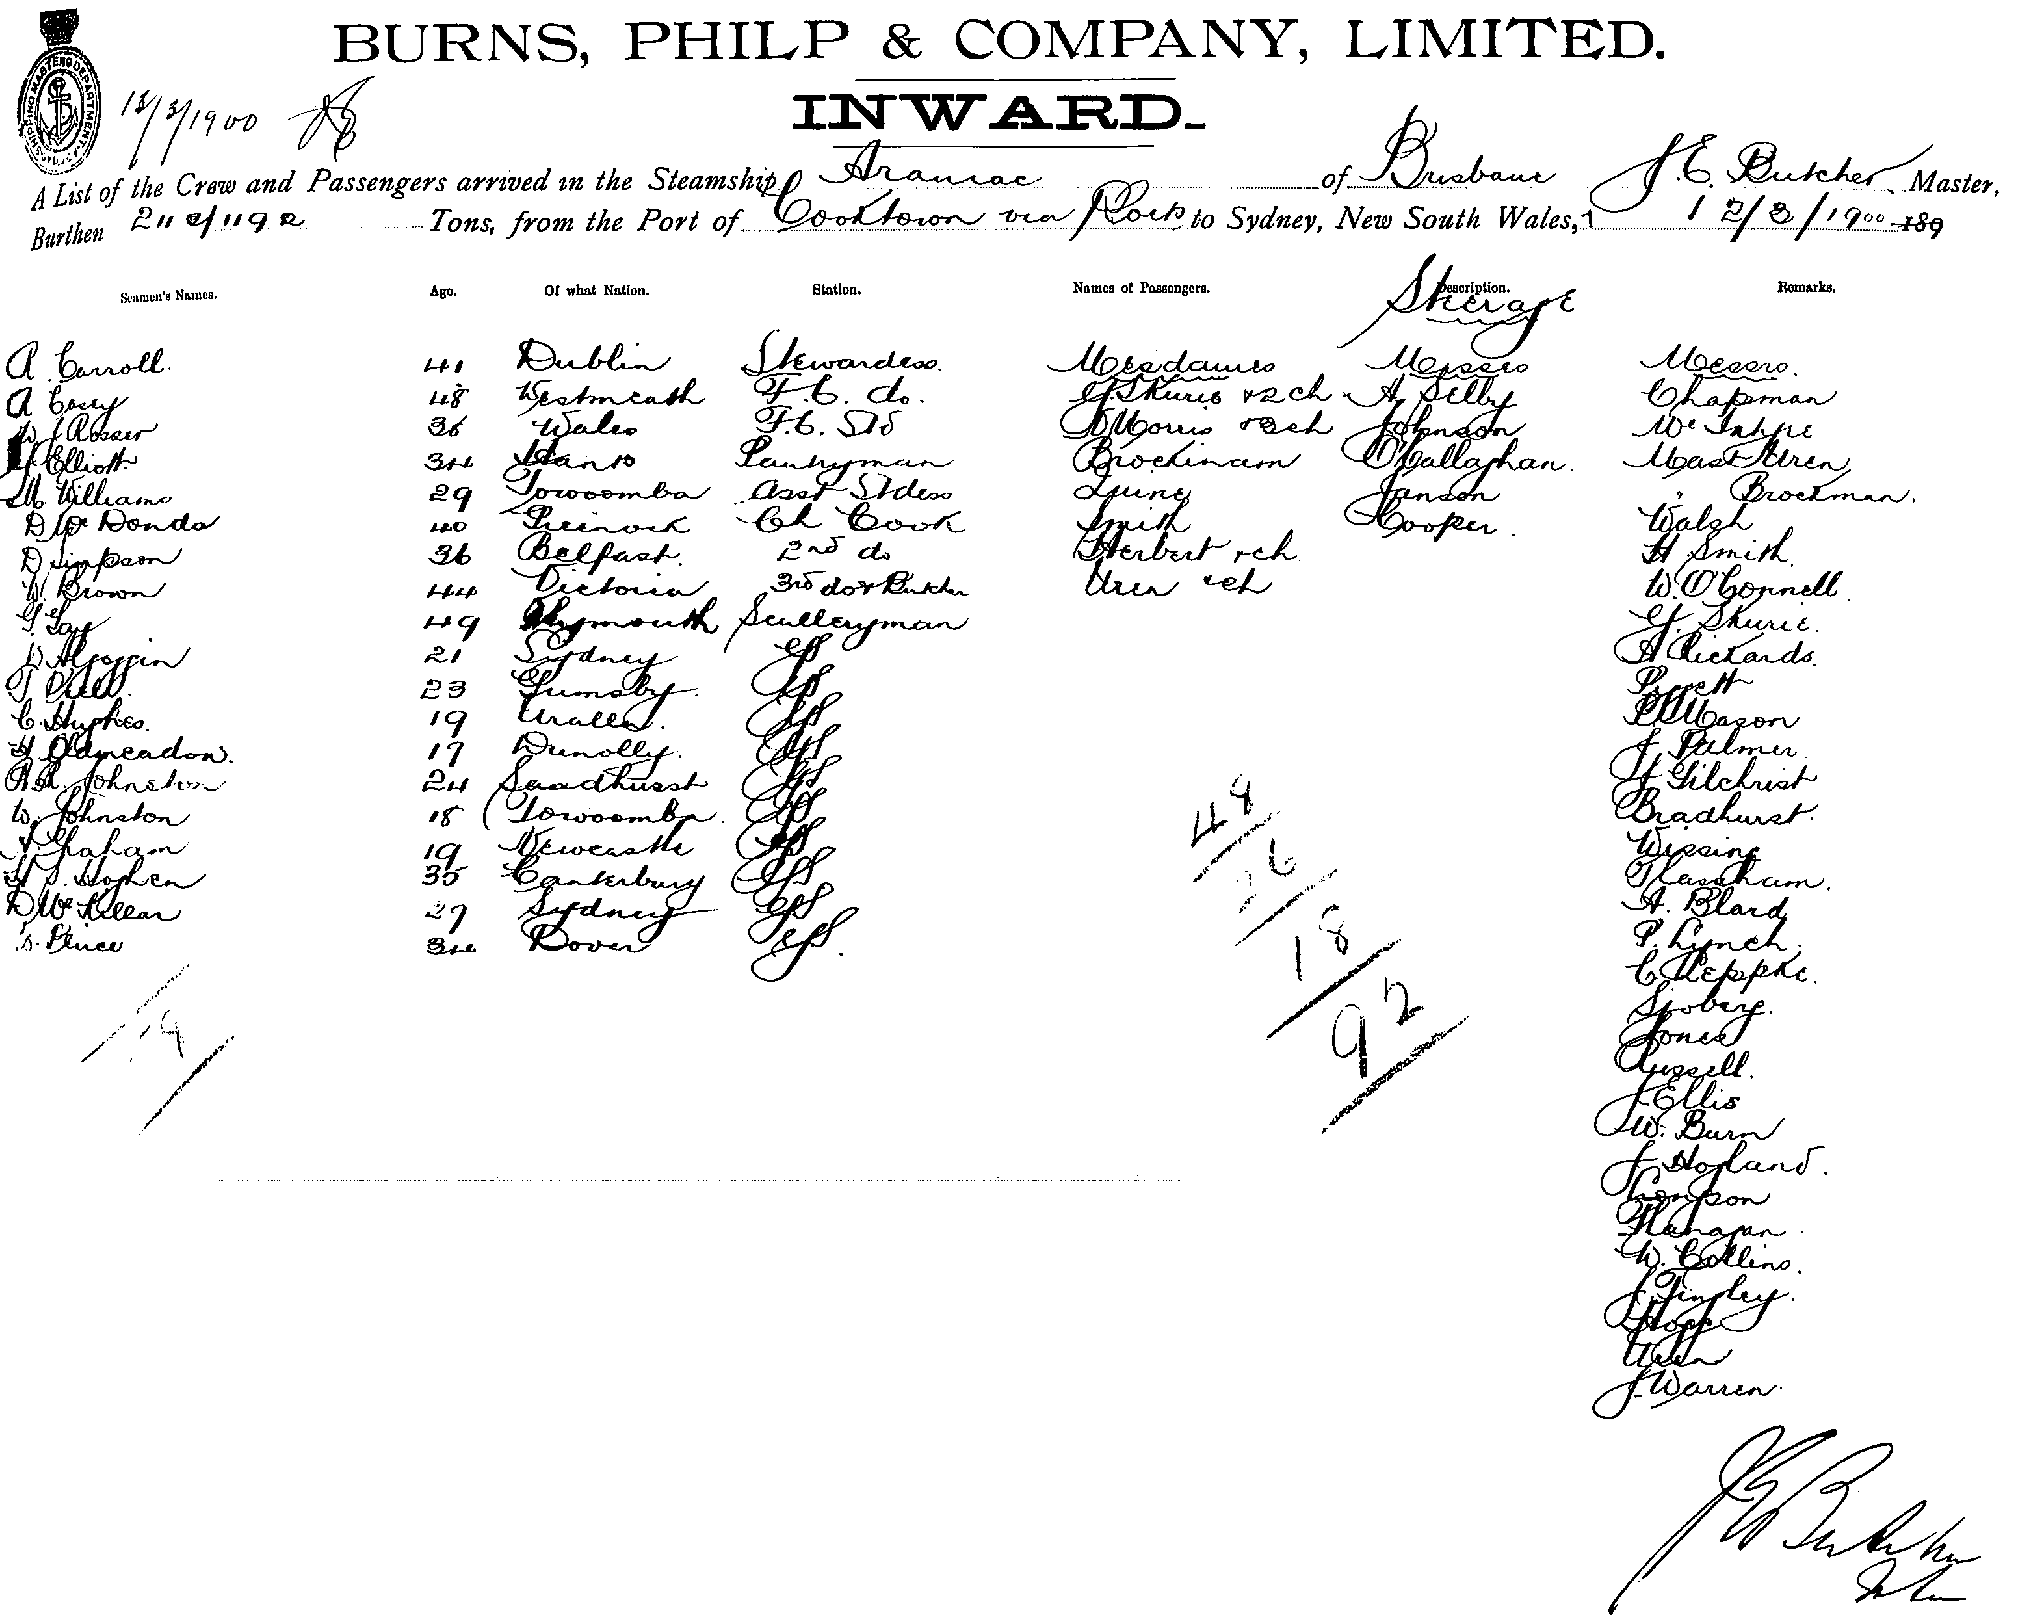 BURNS, PHILP & COMPANY, LIMITED.
INWARD.
SHIPPING MASTERS DEPARTMENT
13/3/1900
A List of the Crew and Passengers arrived in the Steamship Aramac of Brisbane J. E. Butcher Master,
Burthen Tons, from the Port of Cooktown via Ports to Sydney, New South Wales, 12/3/1900 189
Seamen's Names. Age. Of what Nation. Station. Names of Passengers. Description. Remarks.
Steerage
A Carroll. 41 Dublin Stewardess. Mesdames Misses Messrs.
A Casey 48 Westmeath F.C. do. & 2 ch A Selby Chapman
W J Rosser 36 Wales F.C. Std Morris & 3 ch Johnson
Elliott 34 Hants Pantryman O'Callaghan. Mast Uren
M Williams 29 Towoomba Asst Stdess Janson " Brockman.
40 Ch Cook Smith Cooper. Walsh
D Simpson 36 Belfast. 2nd do Herbert & ch H Smith
W. Brown 44 Victoria 3rd do & Butcher Uren & ch W. O'Connell
G. Gay 49 Plymouth Sculleryman
21 Sydney A Rickards.
23 Grimsby.
C. Hughes. 19 Uralla. Mason
Oldmeadow. 17 Dunolly. J Palmer
Johnston 24 Sandhurst Gilchrist
W. Johnston 18 Towoomba Bradhurst.
Graham 19 Newcastle Wissing
35 Canterbury
D McKellar 27 Sydney A. Bland
Price 34 Dover P. Lynch.
C Keppke.
Sjoberg.
Jones
Russell.
J Ellis
W. Burn
J Hogland.
Thompson
Flanagan
W. Collins.
J Tingley.
Hope
Uren
J Warren
48
26
18
92
19
J E Butcher